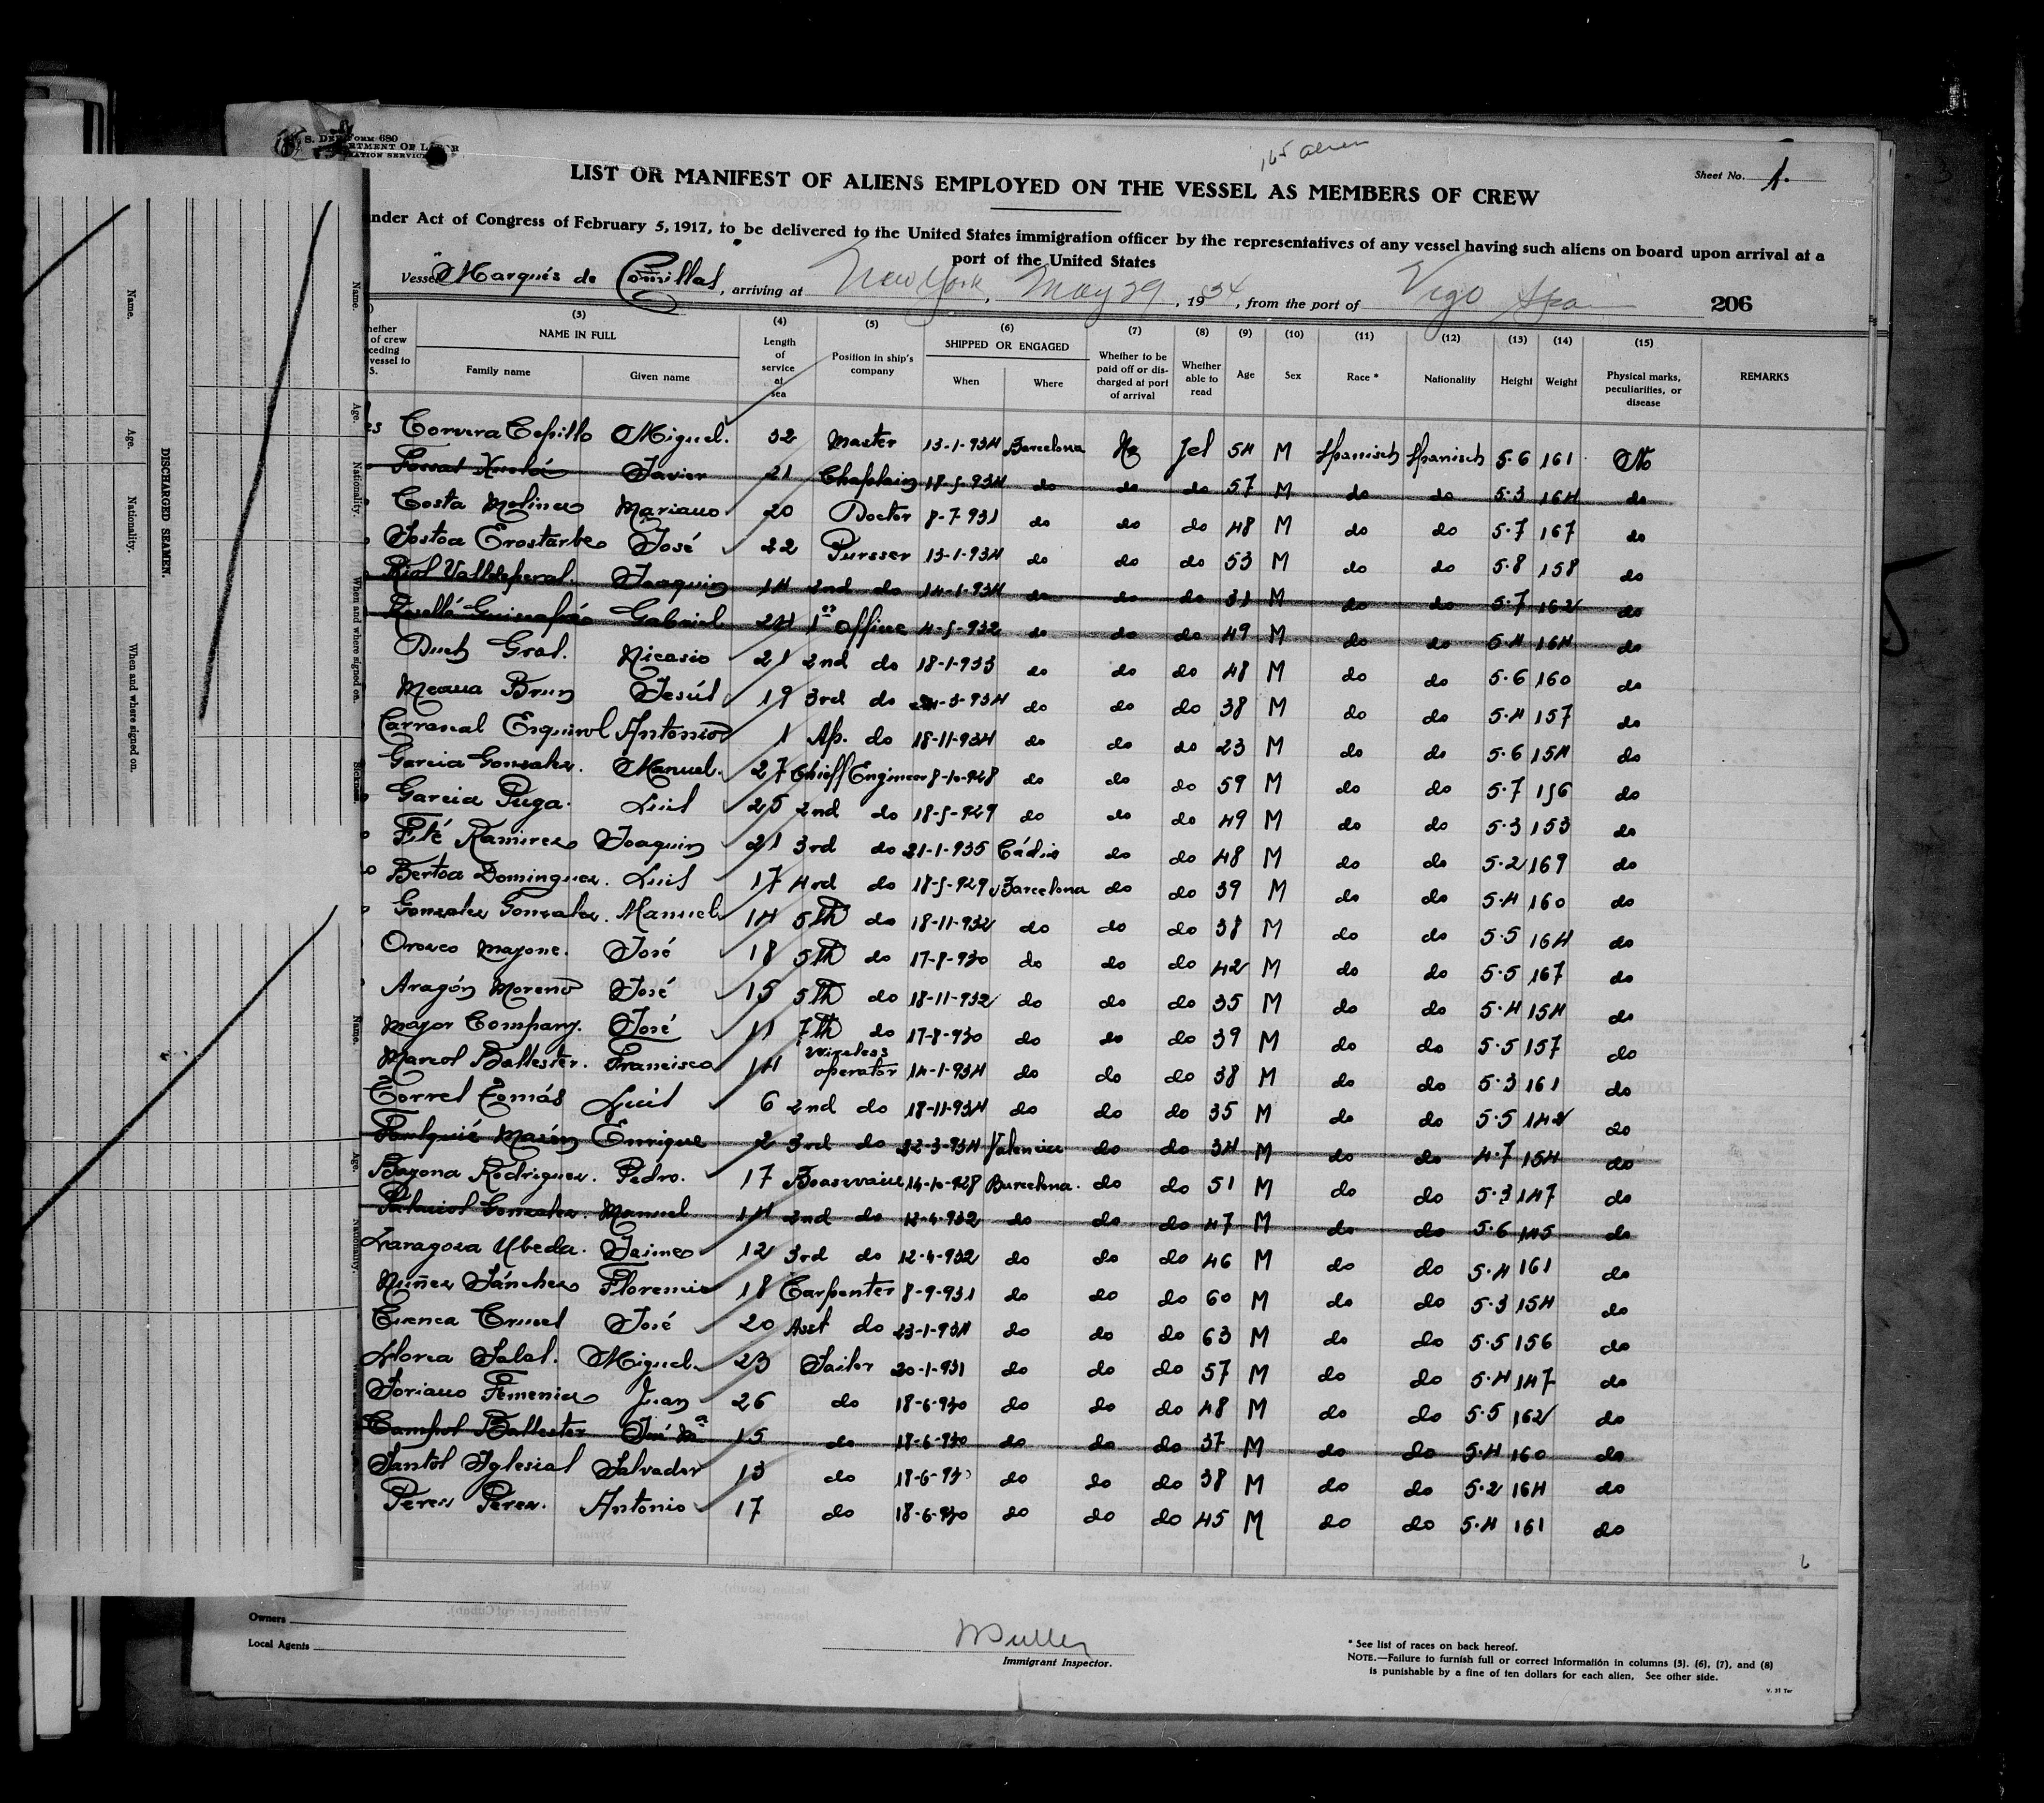 Form 680
LIST OR MANIFEST OF ALIENS EMPLOYED ON THE VESSEL AS MEMBERS OF CREW
Sheet No. 1.
nder Act of Congress of February 5, 1917, to be delivered to the United States immigration officer by the representatives of any vessel having such aliens on board upon arrival at a
port of the United States
Vessel "Marqués de Comillas", arriving at New York, May 29, 1934, from the port of Vigo Spain 206
(3) (4) (5) (6) (7) (8) (9) (10) (11) (12) (13) (14) (15)
NAME IN FULL Length of service at sea Position in ship's company SHIPPED OR ENGAGED Whether to be paid off or discharged at port of arrival Whether able to read Age Sex Race * Nationality Height Weight Physical marks, peculiarities, or disease REMARKS
Family name Given name When Where
Corvera Cepillo Miguel. 32 Master 13-1-934 Barcelona No Jes 54 M Spanisch Spanisch 5.6 161 No
Javier 21 Chaplain 18-5-934 do do do 57 M do do 5.3 164 do
Costa Molinero Mariano 20 Doctor 8-7-931 do do do 48 M do do 5.7 167 do
Sostoa Erostarbe José 22 Pursser 13-1-934 do do do 53 M do do 5.8 158 do
Riol Valldeperal. Joaquin 14 2nd do 14-1-934 do do do 31 M do do 5.7 162 do
Gabriel 24 1er Office 4-5-932 do do do 49 M do do 5.4 164 do
Duch Gral. Nicasio 21 2nd do 18-1-933 do do do 48 M do do 5.6 160 do
Meaua Brun Jesús 19 3rd do do do do 38 M do do 5.4 157 do
Carrascal Esquirol Antonio 1 Ap. do 18-11-934 do do do 23 M do do 5.6 154 do
Garcia Gonzalez. Manuel. 27 Chieff Engineer 8-10-928 do do do 59 M do do 5.7 156 do
Garcia Puga. Luis 25 2nd do 18-5-929 do do do 49 M do do 5.3 153 do
Fité Ramirez Joaquin 21 3rd do 21-1-935 Cádiz do do 48 M do do 5.2 169 do
Bertoa Dominguez. Luis 17 4rd do 18-5-929 Barcelona do do 39 M do do 5.4 160 do
Gonzalez Gonzalez. Manuel 14 5th do 18-11-932 do do do 38 M do do 5.5 164 do
Orozco Mayone. José 18 5th do 17-8-930 do do do 42 M do do 5.5 167 do
Aragón Moreno José 15 5th do 18-11-932 do do do 35 M do do 5.4 154 do
Mayor Company. José 11 7th do 17-8-930 do do do 39 M do do 5.5 157 do
Marcos Ballester. Francisco 14 Wireless operator 14-1-934 do do do 38 M do do 5.3 161 do
Torres Tomás Luis 6 2nd do 18-11-934 do do do 35 M do do 5.5 142 do
Foulquié Marín Enrique 2 3rd do 22-3-934 Valencia do do 34 M do do 4.7 154 do
Bayona Rodriguez. Pedro. 17 Boasvaine 14-10-928 Barcelona. do do 51 M do do 5.3 147 do
Palacios Gonzalez. Manuel 14 2nd do 12-4-932 do do do 47 M do do 5.6 145 do
Zaragoza Ubeda. Jaime 12 3rd do 12-4-932 do do do 46 M do do 5.4 161 do
Nuñez Sánchez Florencio 18 Carpenter 8-9-931 do do do 60 M do do 5.3 154 do
Cuenca Teruel José 20 Asst do 23-1-934 do do do 63 M do do 5.5 156 do
Llorca Salas. Miguel. 23 Sailor 20-1-931 do do do 57 M do do 5.4 147 do
Soriano Femenia Juan 26 do 18-6-930 do do do 48 M do do 5.5 162 do
Campos Ballester José Mª 15 do 18-6-930 do do do 37 M do do 5.4 160 do
Santos Iglesias Salvador 13 do 18-6-930 do do do 38 M do do 5.2 164 do
Perez Perez. Antonio 17 do 18-6-930 do do do 45 M do do 5.4 161 do
Owners
Local Agents
Immigrant Inspector.
* See list of races on back hereof.
NOTE.—Failure to furnish full or correct Information in columns (3), (6), (7), and (8)
is punishable by a fine of ten dollars for each alien, See other side.
Name.
Age.
Nationality.
When and where signed on.
DISCHARGED SEAMEN.